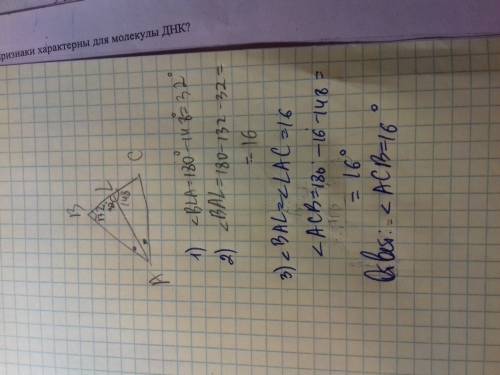 признаки характерны для молекулы ДНК?
B
132
L
148
A
C
1) <BLA=180°-148°=32°
2) <BAL=180-132-32=
=16
3) <BAL=<LAC=16
<ACB=180°-16-148=
=16°
Ответ: <ACB=16°